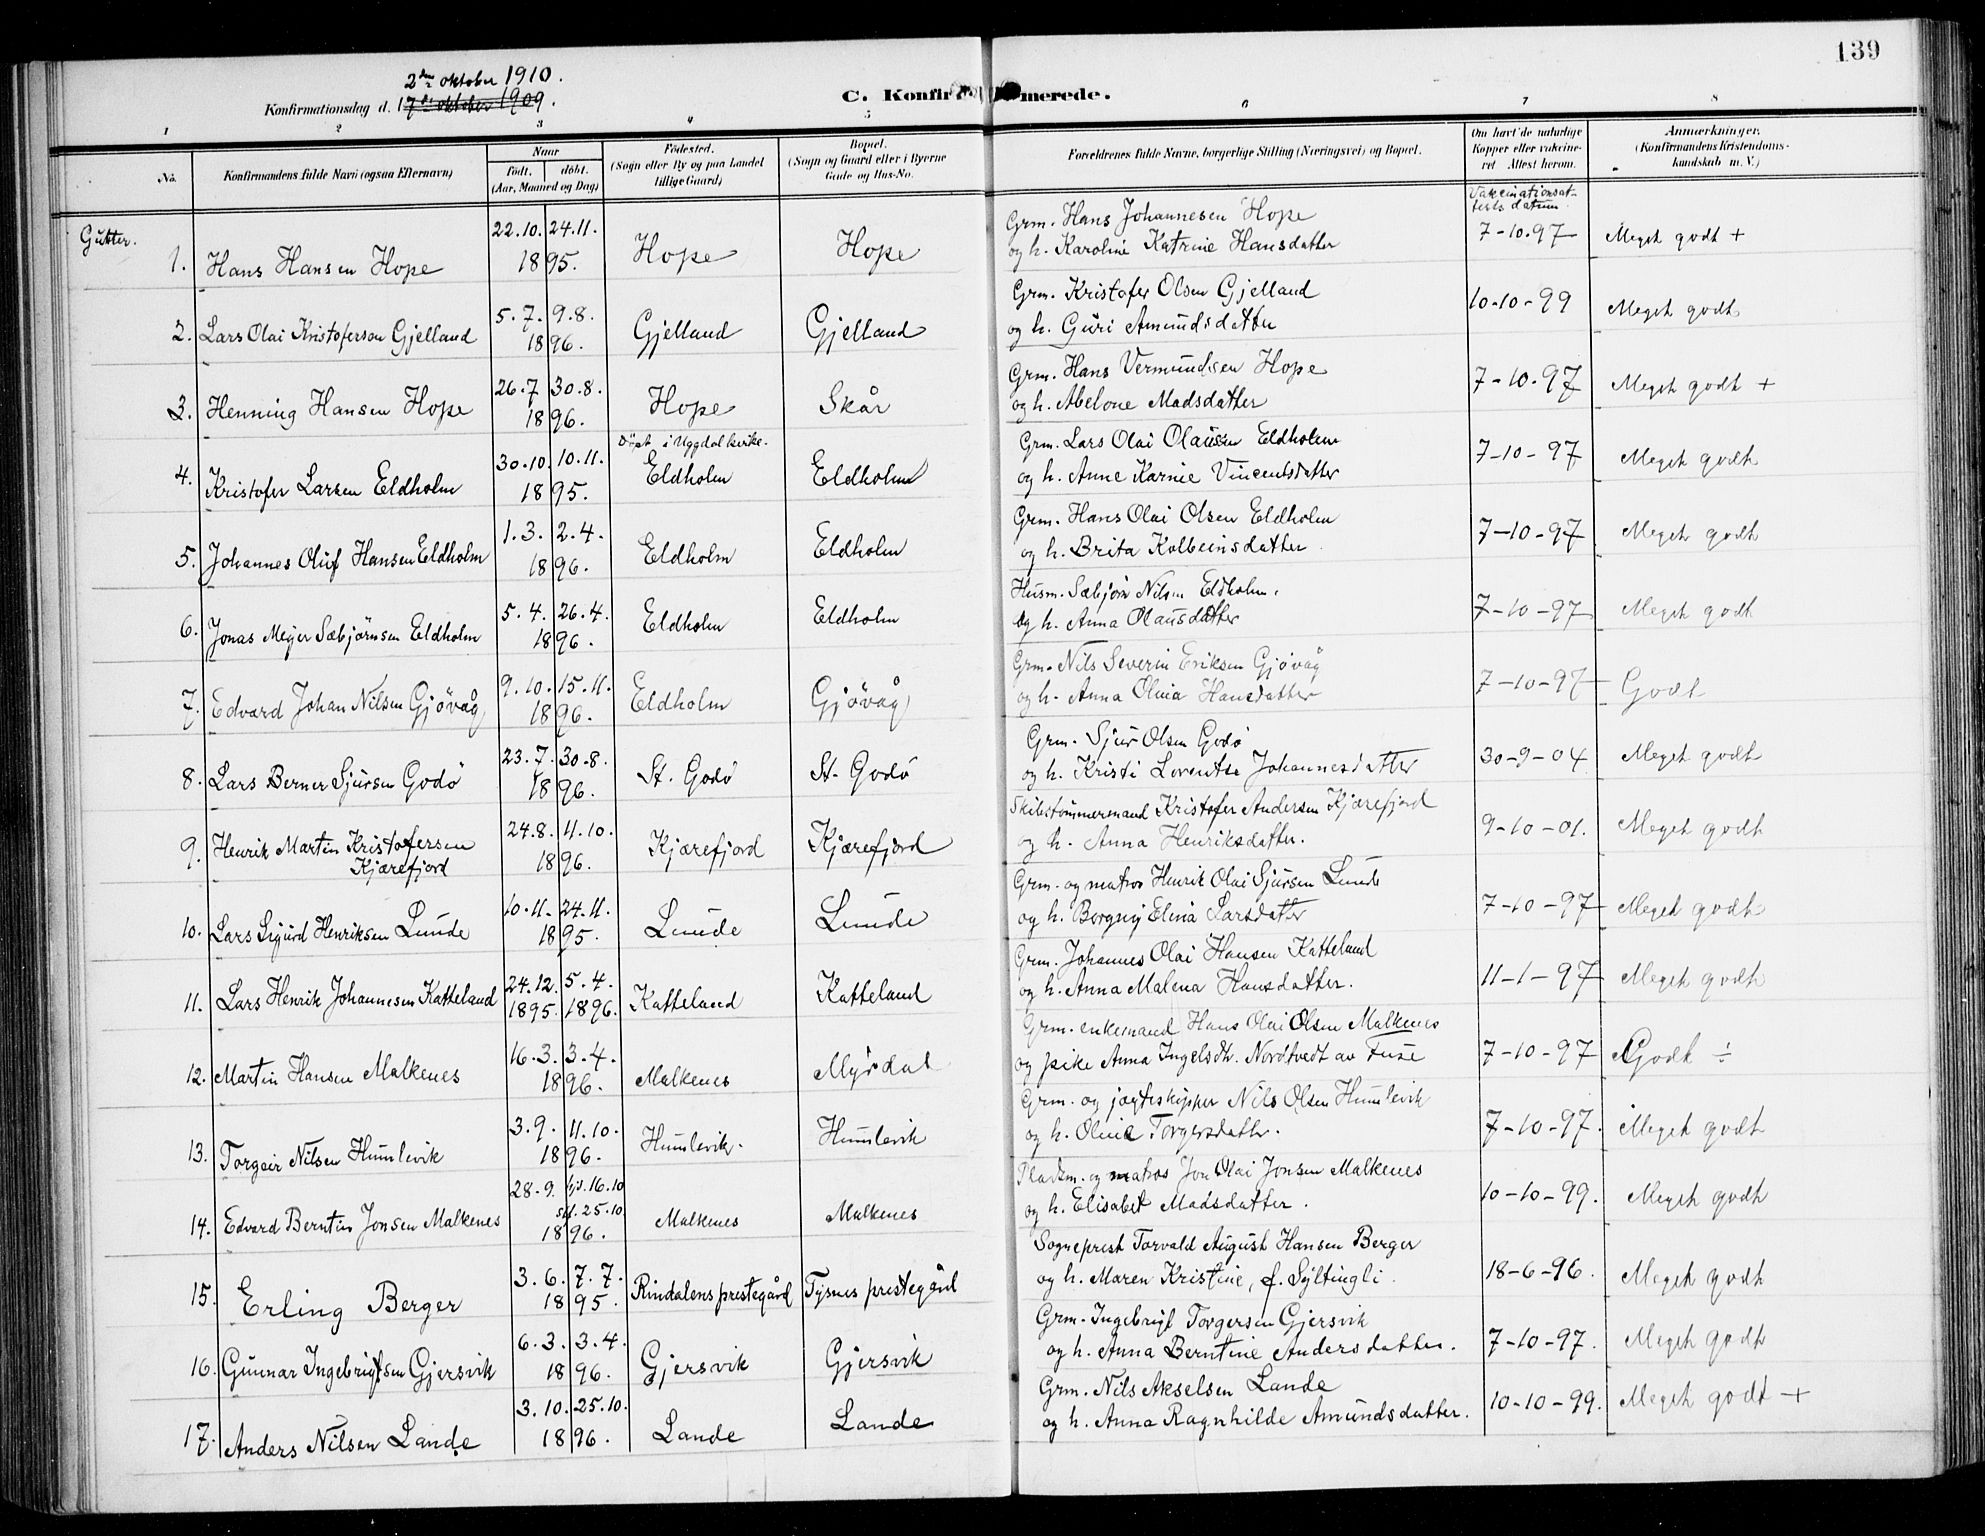 139
2den oktober 1910.
Konfirmationsdag d. 17de oktober 1909.
C. Konfirmerede.
1 2 3 4 5 6 7 8
No. Konfirmandens fulde Navn (ogsaa Efternavn) Naar födt. döbt. (Aar, Maaned og Dag)
Födested. (Sogn eller By og paa Landet tillige Gaard)
Bopæl. (Sogn og Gaard eller i Byerne Gade og Hus-No.
Forældrenes fulde Navne, borgerlige Stilling (Næringsvei) og Bopæl.
Om havt de naturlige Kopper eller vaccineret Attest herom.
Anmærkninger. (Konfirmandens Kristendomskundskab m. V.)
Gutter.
Vakcinationsattests datum.
1. Hans Hansen Hope 22.10. 24.11. 1895. Hope Hope Grm. Hans Johannesen Hope
og h. Karoline Katrine Hansdatter 7-10-97 Meget godt +
2. Lars Olai Kristoferson Gjelland 5.7. 9.8. 1896. Gjelland Gjelland Grm. Kristofer Olsen Gjelland
og h. Guri Amundsdatter 10-10-99 Meget godt
3. Henning Hansen Hope 26.7 30.8. 1896. Hope Skår Grm. Hans Vermundsen Hope
og h. Abelone Madsdatter 7-10-97 Meget godt +
4. Kristofer Larsen Eldholm 30.10. 10.11. 1895. Döpt i Uggdal kirke. Eldholm Eldholm Grm. Lars Olai Olausen Eldholm
og h. Anne Karine Vincentsdatter 7-10-97 Meget godt
5. Johannes Oluf Hansen Eldholm 1.3. 2.4. 1896. Eldholm Eldholm Grm. Hans Olai Olsen Eldholm
og h. Brita Kolbeinsdatter. 7-10-97 Meget godt
6. Jonas Mejer Sæbjörnsen Eldholm 5.4. 26.4. 1896. Eldholm Eldholm Husm. Sæbjörn Nilsen Eldholm.
og h. Anna Olausdatter 7-10-97 Meget godt
7. Edvard Johan Nilsen Gjövåg 9.10. 15.11. 1896. Eldholm Gjövåg Grm. Nils Severin Eriksen Gjövåg
og h. Anna Olina Hansdatter 7-10-97 Godt
8. Lars Berner Sjursen Godö 23.7. 30.8. 1896. St. Godö St. Godö Grm. Sjur Olsen Godö
og h. Kristi Lorentse Johannesdatter 30-9-04 Meget godt
9. Henrik Martin Kristofersen Kjærefjord 24.8. 11.10. 1896. Kjærefjord Kjærefjord Skibstömmermand Kristofer Andersen Kjærefjord
og h. Anna Henriksdatter. 9-10-01. Meget godt
10. Lars Sigurd Henriksen Lunde 10.11. 24.11. 1895. Lunde Lunde Grm. og matros Henrik Olai Sjursen Lunde
og h. Borgny Elina Larsdatter 7-10-97 Meget godt
11. Lars Henrik Johannesen Katteland 24.12. 1895. 5.4. 1896. Katteland Katteland Grm. Johannes Olai Hansen Katteland
og h. Anna Malena Hansdatter. 11-1-97 Meget godt
12. Martin Hansen Malkenes 16.3. 3.4. 1896. Malkenes Myrdal Grm. enkemand Hans Olai Olsen Malkenes
og pike Anna Ingelsdtr. Nordtvedt av Fuse 7-10-97 Godt ÷
13. Torgeir Nilsen Humlevik 3.9. 11.10. 1896. Humlevik. Humlevik Grm. og jagteskipper Nils Olsen Humlevik
og h. Olina Torgersdatter. 7-10-97. Meget godt
14. Edvard Berntin Jonsen Malkenes 28.9. hjd. 16.10 stf. 25.10 1896. Malkenes Malkenes Pladsm. og matros Jon Olai Jonsen Malkenes
og h. Elisabet Madsdatter. 10-10-99. Meget godt
15. Erling Berger 3.6. 7.7. 1895. Rindalens prestegård Tysnes prestegård Sogneprest Torvald August Hansen Berger
og h. Maren Kristine, f. Syltingli. 18-6-96. Meget godt
16. Gunnar Ingebrigtsen Gjersvik 6.3. 3.4. 1896. Gjersvik Gjersvik Grm. Ingebrigt Torgersen Gjersvik
og h. Anna Berntine Andersdatter. 7-10-97. Meget godt
17. Anders Nilsen Lande 3.10. 25.10. 1896. Lande Lande Grm. Nils Akselsen Lande
og h. Anna Ragnhilde Amundsdatter. 10-10-99. Meget godt +